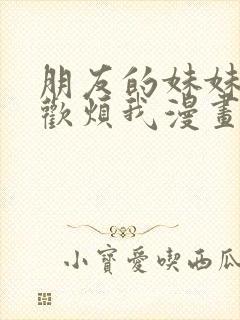 朋友的妹妹
歡煩我漫畫
小寶愛喫西瓜